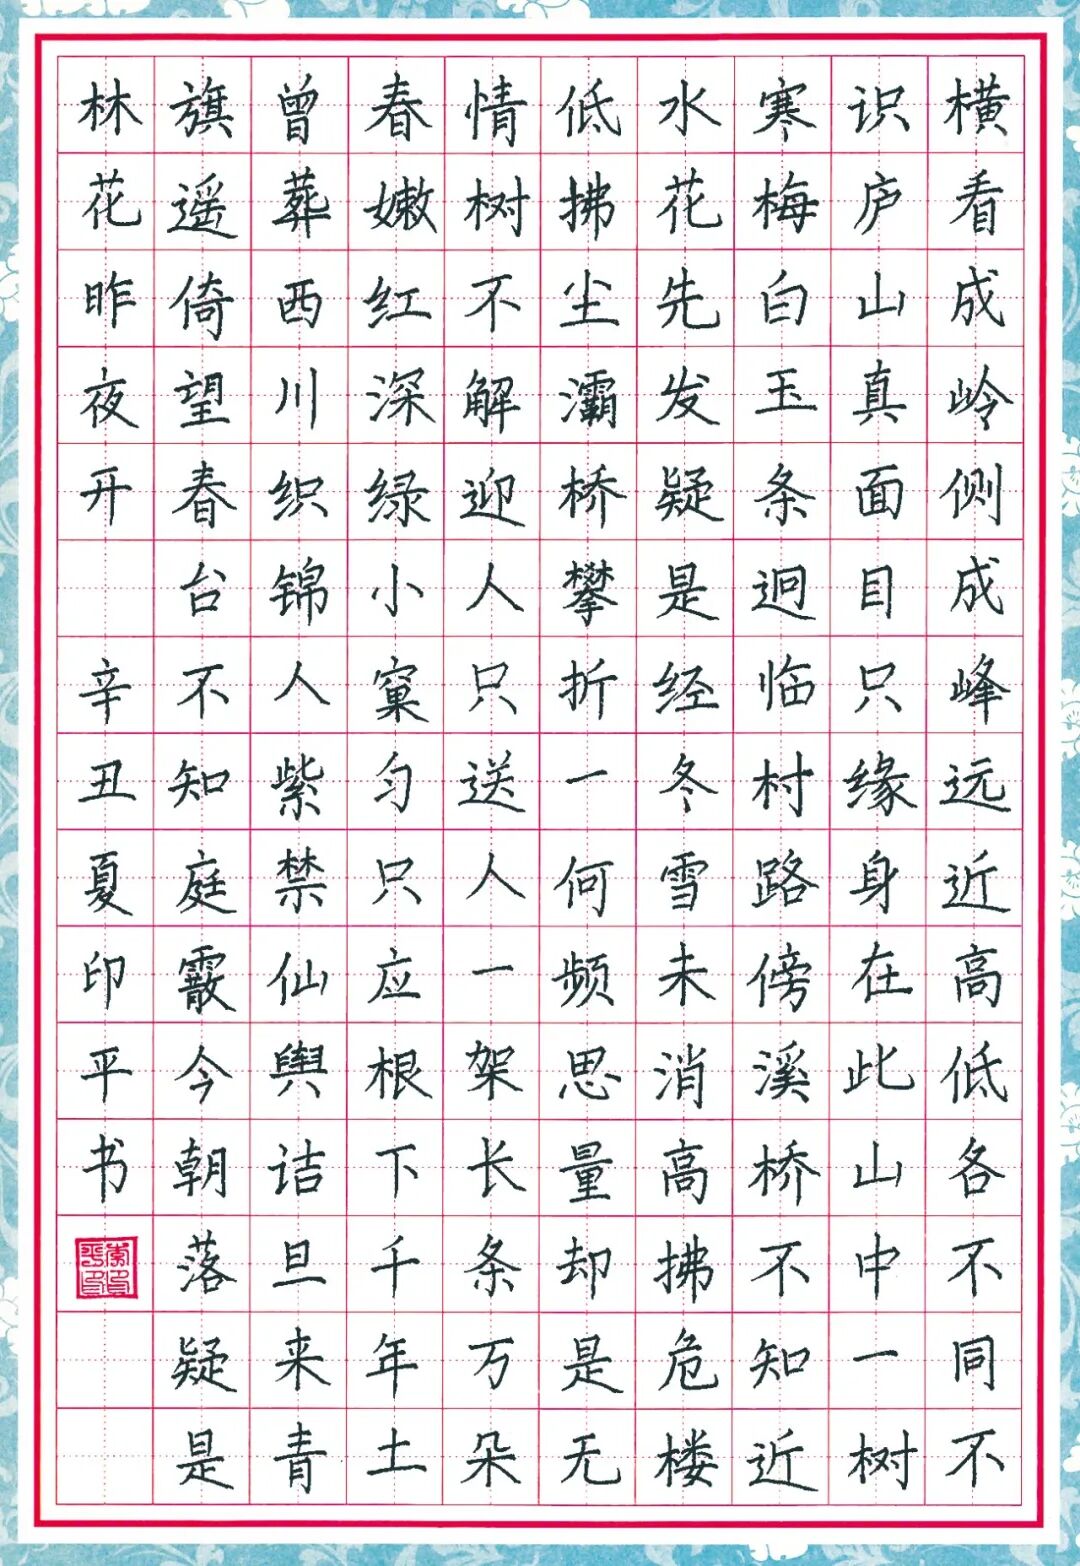 横看成岭侧成峰远近高低各不同不
识庐山真面目只缘身在此山中一树
寒梅白玉条迥临村路傍溪桥不知近
水花先发疑是经冬雪未消高拂危楼
低拂尘灞桥攀折一何频思量却是无
情树不解迎人只送人一架长条万朵
春嫩红深绿小窠匀只应根下千年土
曾葬西川织锦人紫禁仙舆诘旦来青
旗遥倚望春台不知庭霰今朝落疑是
林花昨夜开 辛丑夏印平书